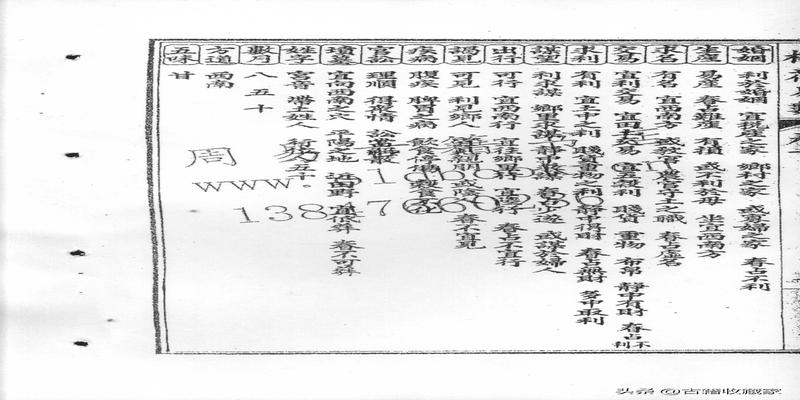 婚姻 利於婚姻 宜稅產之家 鄉村之家 或寡婦之家 春占不利
生產 易產 春占難產 有損 或不利於母 坐宜西南方
求名 有名 宜西南方 或教官 農官守土之職 春占虛名
交易 宜利交易 宜田土交易 宜五穀利 賤貨 重物 布帛 靜中有財 春占不利
求利 有利 宜土中之利 賤貨重物之利 靜中得財 春占無財 多中取利
謀望 利求謀 鄉里求謀 靜中求謀 春占少遂 或謀於婦人
出行 可行 宜西南行 宜往鄉里行 宜陸行 春占不宜行
謁見 可見 利見鄉 親朋 或陰 春不宜見
疾病 腹疾 脾胃之病 飲食停傷 穀食不化
官訟 理順 得眾情 訟當解散
墳墓 宜向西南之穴 平陽之地 近田野 宜低葬 春不可葬
姓字 宮音 帶土姓人 行位八五十。
數月 八 五 十
方道 西南
五味 甘
周易
www.
138 7
头条 @古籍收藏家